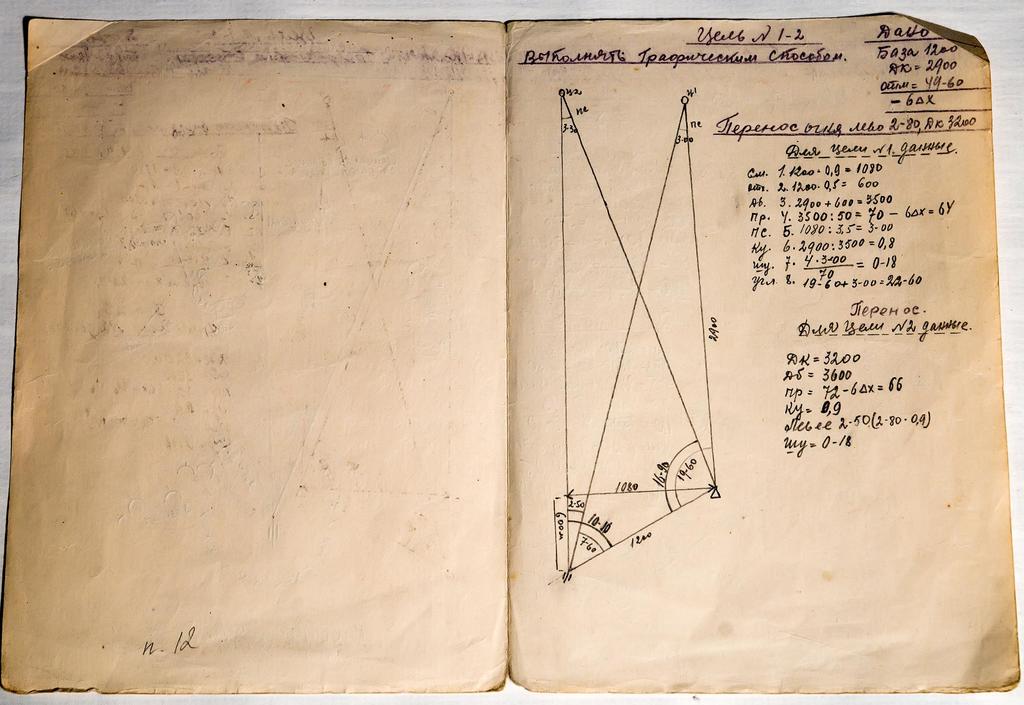 п. 12
Цель N 1-2
Выполнять Графическим способом.
Дано
База 1200
Дк = 2900
отм = 49-60
- 6ΔX
Перенос огня лево 2-80, Дк 3200
Для цели N1. данные.
см. 1. 1200 · 0,9 = 1080
отх. 2. 1200 · 0,5 = 600
Дб. 3. 2900 + 600 = 3500
пр. 4. 3500 : 50 = 70 - 6ΔX = 64
ПС. 5. 1080 : 3,5 = 3-00
Ку. 6. 2900 : 3500 = 0,8
шу. 7. 4·3-00 / 70 = 0-18
угл. 8. 19-60 + 3-00 = 22-60
Перенос.
Для Цели N2 данные.
Дк = 3200
Дб = 3600
пр = 72 - 6ΔX = 66
Ку = 0,9
Левее 2-50 (2-80 · 0,9)
шу = 0-18
ц2
ц1
пс
3-30
пс
3-00
2900
16-90
19-60
1080
2-50
10-10
7-60
600м
1200